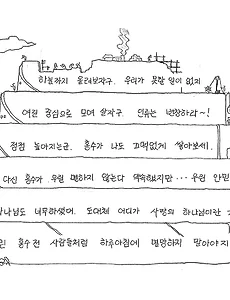 하늘까지 올려보자구. 우리가 못할 일이 없지
여긴 중심으로 모여 살자구. 인류는 번창하라~!
점점 높아지는군. 홍수가 나도 끄떡없게 쌓아보세!
다신 홍수가 우릴 멸하지 않는다 약속했지만… 우린 안믿
나님도 너무하셨어. 도대체 어디가 사랑의 하나님이란
홍수전 사람들처럼 하루아침에 멸망하지 말아야지